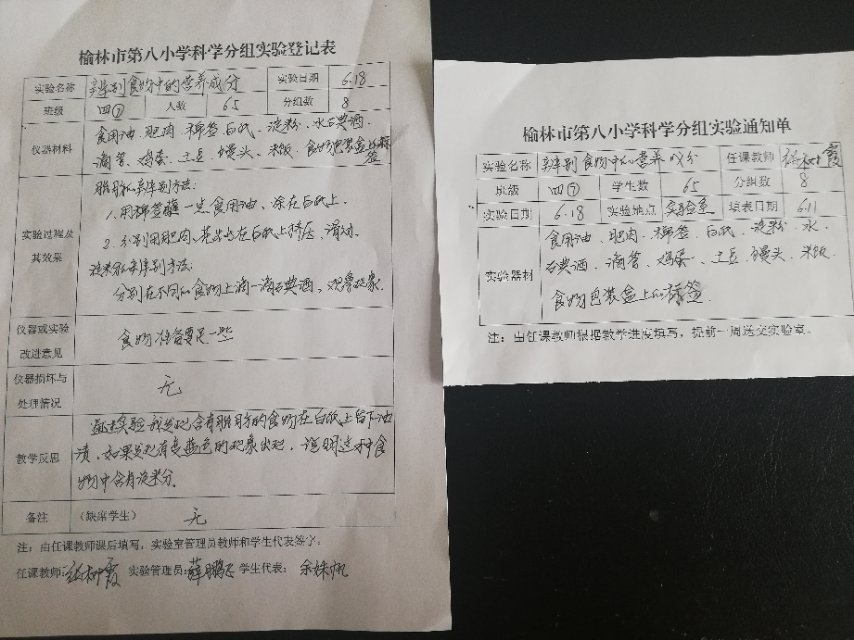 榆林市第八小学科学分组实验登记表
实验名称 辨别食物中的营养成分 实验日期 6.18
班级 四⑦ 人数 65 分组数 8
仪器材料 食用油、肥肉、棉签、白纸、淀粉、水、碘酒、
滴管、鸡蛋、土豆、馒头、米饭、食物包装盒的标签
实验过程及其效果
脂肪的辨别方法：
1.用棉签蘸一点食用油、涂在白纸上。
2.分别用肥肉、花生在白纸上挤压、滑动。
淀粉的辨别方法：
分别在不同的食物上滴一滴碘酒、观察现象。
仪器或实验改进意见 食物准备要足一些
仪器损坏与处理情况 无
教学反思
通过实验我发现含有脂肪的食物在白纸上留下油
渍、如果发现有变蓝色的现象出现、说明这种食
物中含有淀粉。
备注 （缺席学生） 无
注：由任课教师课后填写，实验室管理员教师和学生代表签字。
任课教师： 霞 实验管理员：薛鹏飞 学生代表：余姝帆
榆林市第八小学科学分组实验通知单
实验名称 辨别食物中的营养成分 任课教师 霞
班级 四⑦ 学生数 65 分组数 8
实验日期 6.18 实验地点 实验室 填表日期 6.11
实验器材
食用油、肥肉、棉签、白纸、淀粉、水、
碘酒、滴管、鸡蛋、土豆、馒头、米饭
食物包装盒上的标签.
注：由任课教师根据教学进度填写，提前一周送交实验室。